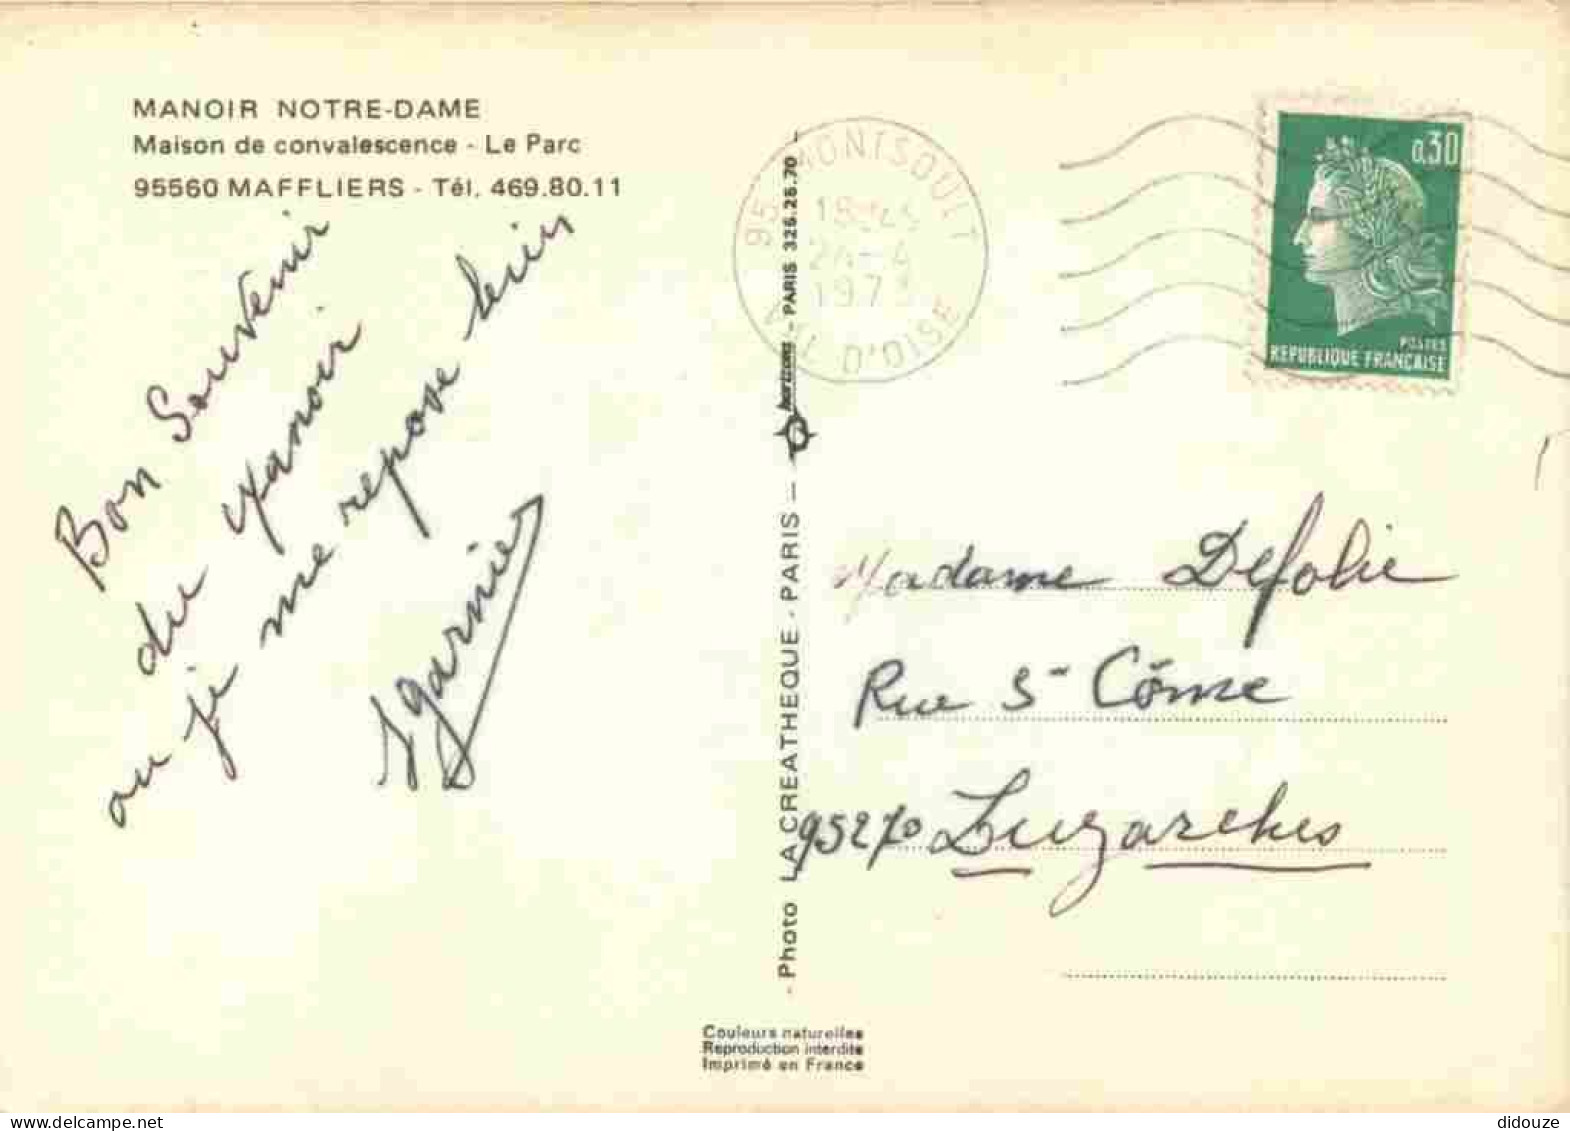 MANOIR NOTRE-DAME
Maison de convalescence - Le Parc
95560 MAFFLIERS - Tél. 469.80.11
Bon Souvenir
du Manoir
ou je me repose bien
Garnier
- Photo LA CREATHEQUE - PARIS -
horizons - PARIS 325.25.70 -
95 MONTSOULT
18H45
24-4
1973
VAL D'OISE
0,30
POSTES
REPUBLIQUE FRANÇAISE
Madame Defolie
Rue St Côme
95270 Luzarches
Couleurs naturelles
Reproduction interdite
Imprimé en France
delcampe.net
didouze